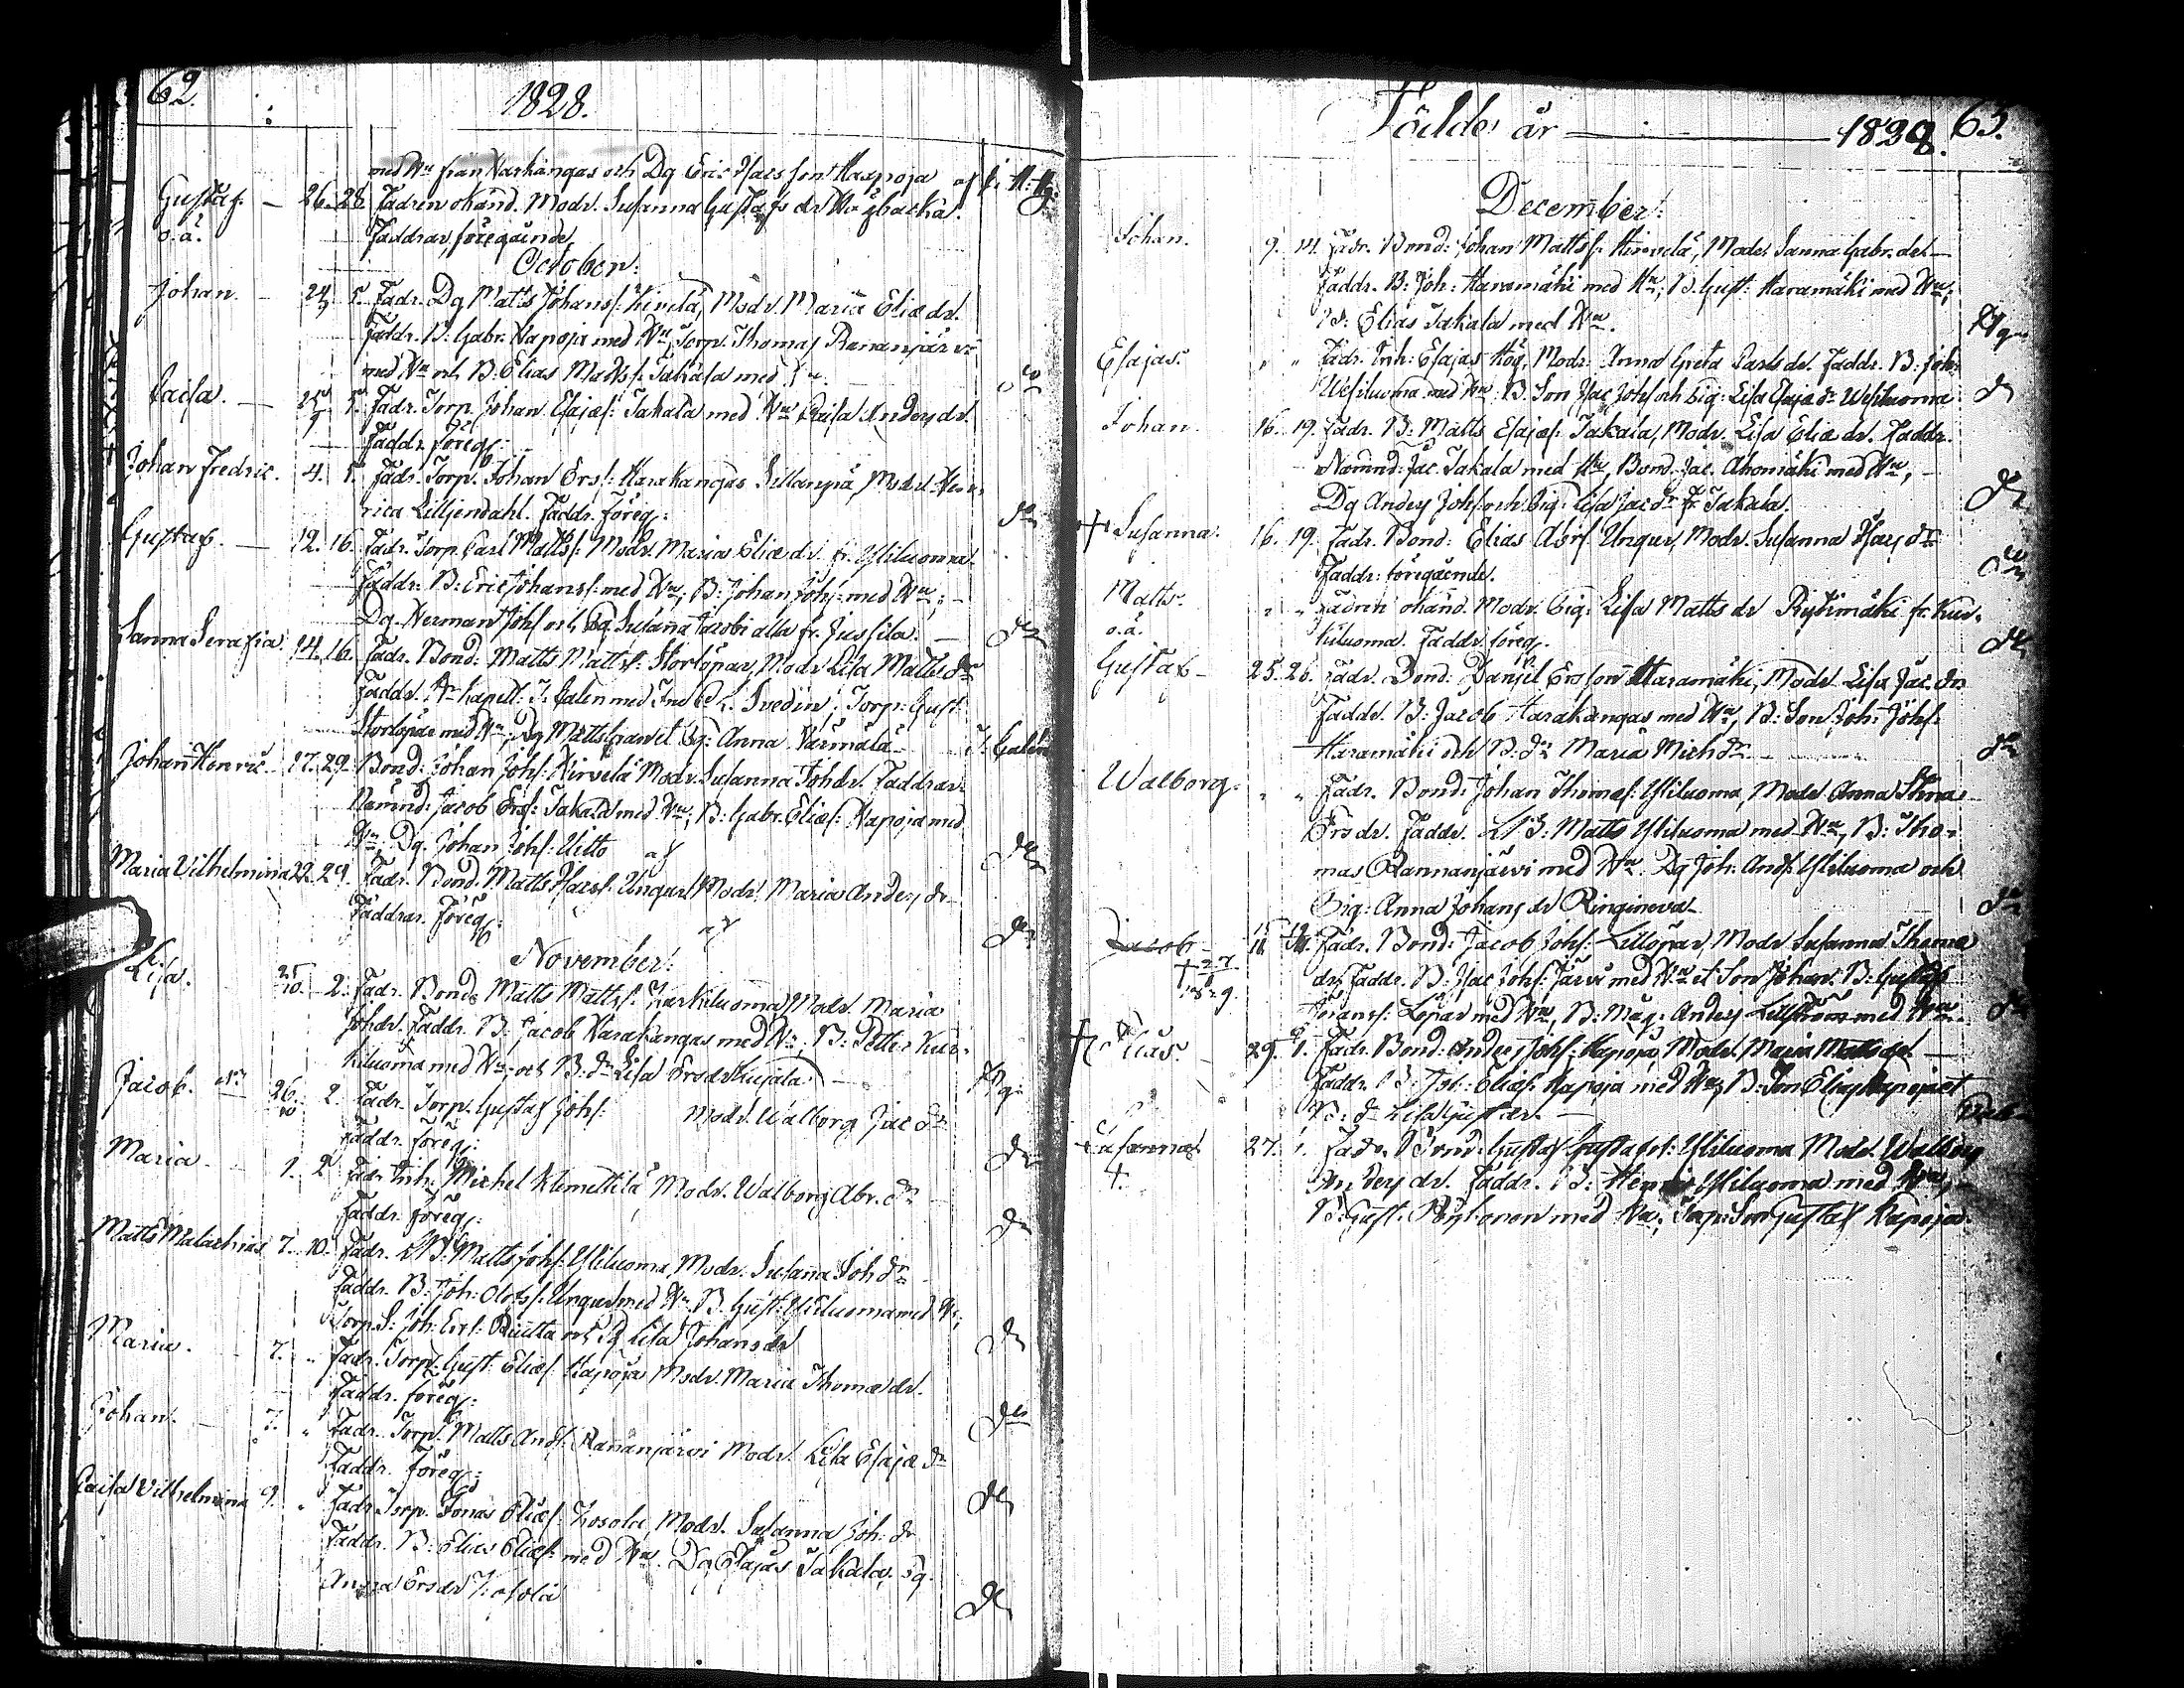 62.
1828.
med H:u från Karhångas och Dg Eric Isacsson Kaapoja
Gustaf. — 26. 28. Fadren okänd. Modr. Susanna Gustafs dr
o.ä. Faddrar, föregående.
October:
Johan. — 24/9 5. Fadr. Dg Matts Johans f: Kivelä, Modr. Maria Eliæ dr.
Faddr. B: Gabr. Kapoja med H:u, Torp. Thomas Rananjärvi
med H:u och B: Elias Matts f: Jakala med
Caisa. — 25/9 5. Fadr. Torp. Johan Esajæ f: Jakala med H:u Caisa Anders dr.
Faddr. föreg:
Johan Fredric. 4. 5. Fadr. Torp. Johan Ers f: Harakangas Sillanpä, Modr. Hen-
rica Lilljendahl. Faddr. föreg: do
Gustaf. — 12. 16. Fadr. Torp. Carl Matts f: Modr. Maria Eliæ dr. fr. Yliluoma.
Faddr. B: Eric Johans f: med H:u; B: Johan Joh f: med H:u; —
Dg. Herman Joh f och Pig Susanna Jacobi alla fr. Jussila. — do
Sanna Serafia. 14. 16. Fadr. Bond: Matts Matts f: Storlöpar, Modr Lisa Matts dr
Faddr. Kapell: J. Galen med Svedin, Torp: Gust:
Storlöpar med H:u, Dg Matts et Pig: Anna J. Galen
Johan Henric 17. 29. Bond: Johan Joh f: Hirvelä Modr. Susanna Joh dr. Faddrar.
Nämnd: Jacob Ers f: Jakala med H:u; B: Gabr. Eliæ f: Kapoja med
H:u; Dg. Johan Joh f: Uitto do
Maria Vilhelmina 22. 29. Fadr. Bond. Matts Isacs f: Ungar, Modr. Maria Anders dr
Faddrar. föreg: do
November:
Lisa. 25/10. 2. Fadr. Bond: Matts Matts f: Kurkiluoma, Modr. Maria
Joh dr. Faddr. B: Jacob Harakangas med H:u; B: Petter Kur-
kiluoma med H:u; och B: dr Lisa Ers dr Kujala — Klg.
Jacob. 26/10 2. Fadr. Torp. Gustaf Joh f: Modr. Walborg Jac dr
Faddr. föreg: do
Maria. — 1. 2. Fadr Inh: Michel Klemettilä Modr. Walborg Abr. dr
Faddr. föreg: do
Matts Malachias 7. 10. Fadr. Matts Joh f: Yliluoma, Modr. Susanna Joh dr
Faddr. B. Joh: Olofs f: Ungar med H:u B. Gust: Yliluoma med H:u;
Torp. S: Joh: Ers f: och Pig Lisa Johans dr do
Maria. 7. „ Fadr. Torp: Gust: Eliæ f: Kapoja Modr. Maria Thomæ dr.
Faddr. föreg: do
Johan. — 7. „ Fadr. Torp. Matts And f: Rananjärvi Modr. Lisa Esajæ dr
Faddr. föreg: do
Caisa Vilhelmina 9. „ Fadr Torp. Jonas Eliæ f: Kosola, Modr. Susanna Joh: dr
Faddr. B: Elias Eliæ f: med H:u. Dg Esajas Jakala,
Anna Ers dr Kosola do
Födde år — 1828. 63.
December:
Johan. 9. 14. Fadr. Bond: Johan Matts f: Hirvelä, Modr Sanna Gabr. dr —
Faddr. B: Joh: Haramäki med H:u; B. Gust: Haramäki med H:u;
B: Elias Jakala med H:u. Klg
Esajas. „ „ Fadr. Inh: Esajas Hög, Modr: Anna Greta Carls dr. Faddr. B: Joh:
Wesiluoma med H:u B. Son Isac Joh f och Pig: Lisa Esajæ dr Wesiluoma do
Johan. 16. 19. Fadr. B: Matts Esajæ f: Jakala, Modr. Lisa Eliæ dr. Faddr.
Nämnd: Jac. Jakala med H:u, Bond. Jac. Ahomäki med H:u, —
Dg Anders Joh f och Pig: Lisa Jac dr fr Jakala. do
+ Susanna. 16. 19. Fadr. Bond: Elias Abr f. Ungar, Modr. Susanna Isacs dr
Faddr: föregående. do
Matts. „ „ Fadren okänd. Modr. Pig: Lisa Matts dr fr. Kur-
o.ä. kiluoma. Faddr. föreg. do
Gustaf — 25. 26. Fadr. Bond: Daniel Ersson Haramäki, Modr. Lisa Jac. dr
Faddr. B: Jacob Harakangas med H:u, B: Son Joh: Joh f:
Haramäki och B: dr Maria Mich dr — do
Walborg. „ „ Fadr. Bond: Johan Thomæ f: Yliluoma, Modr Anna
Ers dr. Faddr. Matts Yliluoma med H:u, B: Tho-
mas Rannanjärvi med H:u. Dg Joh: And f: Yliluoma och
Pig: Anna Johans dr Ringineva — do
Jacob — Fadr. Bond: Jacob Joh f: Lillöpar, Modr Susanna Thomæ
dr, Faddr. B: Isac Joh f: Järvi med H:u et Son Johan. B: Gustaf
Johans f: Löpar med H:u, B: Måg: Anders med H:u. do
Elias. — 29. 1. Fadr. Bond: Anders Joh f: Kapoja, Modr. Maria Matts dr. —
Faddr. B: Joh: Eliæ f: Kapoja med H:u, B: Son Elias Kapoja et
B: dr Lisa Gust dr. —
Susanna 27. 1. Fadr. Bond: Gustaf Gustafs f: Yliluoma Modr. Walborg
+. Anders dr. Faddr. B: Henric Yliluoma med H:u, —
B: Gust. med H:u; Torp: Son Gustaf Kapoja.